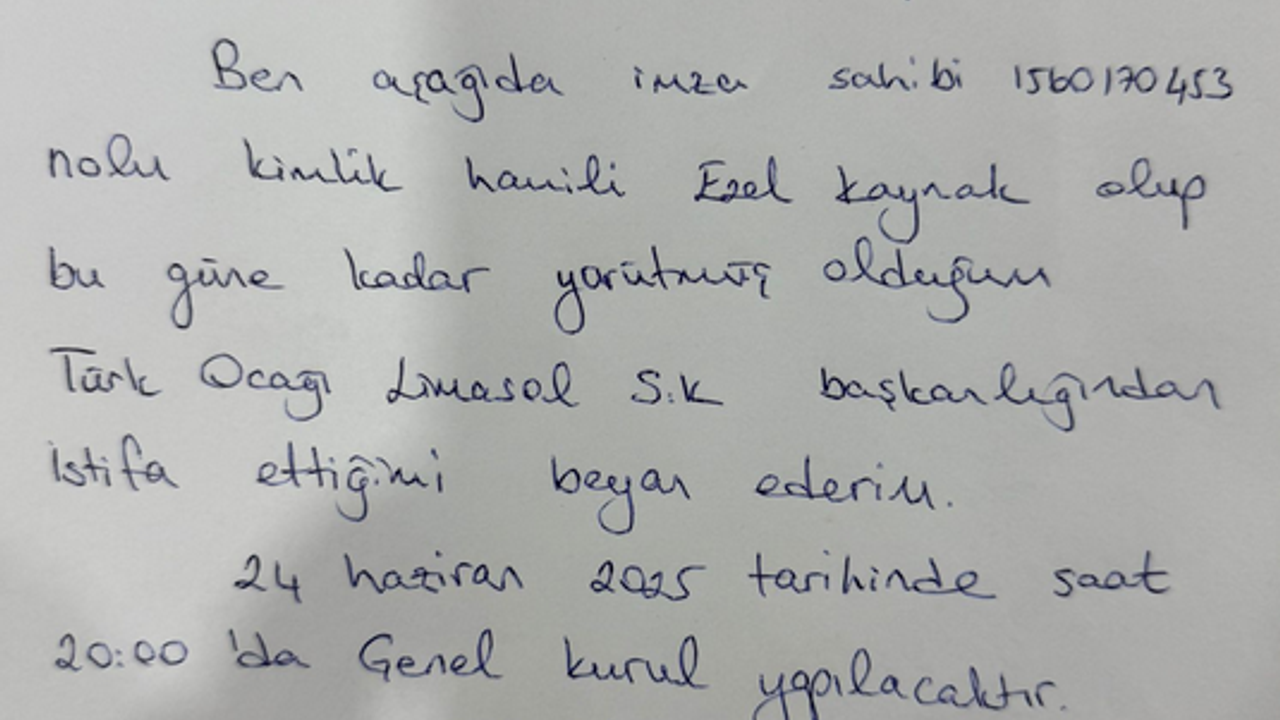 Ben aşağıda imza sahibi 1560170453
nolu kimlik hamili Ezel Kaynak olup
bu güne kadar yürütmüş olduğum
Türk Ocağı Limasol S.K başkanlığından
istifa ettiğimi beyan ederim.
24 haziran 2025 tarihinde saat
20:00 'da Genel kurul yapılacaktır.